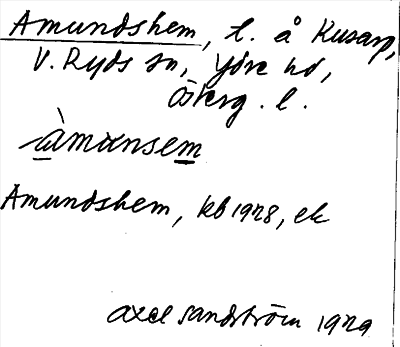 Amundshem, t. å Kusarp,
V. Ryds sn, Ydre hd,
Österg. l.
àmunsem
Amundshem, kb 1928, ek
Axel Sandström 1929